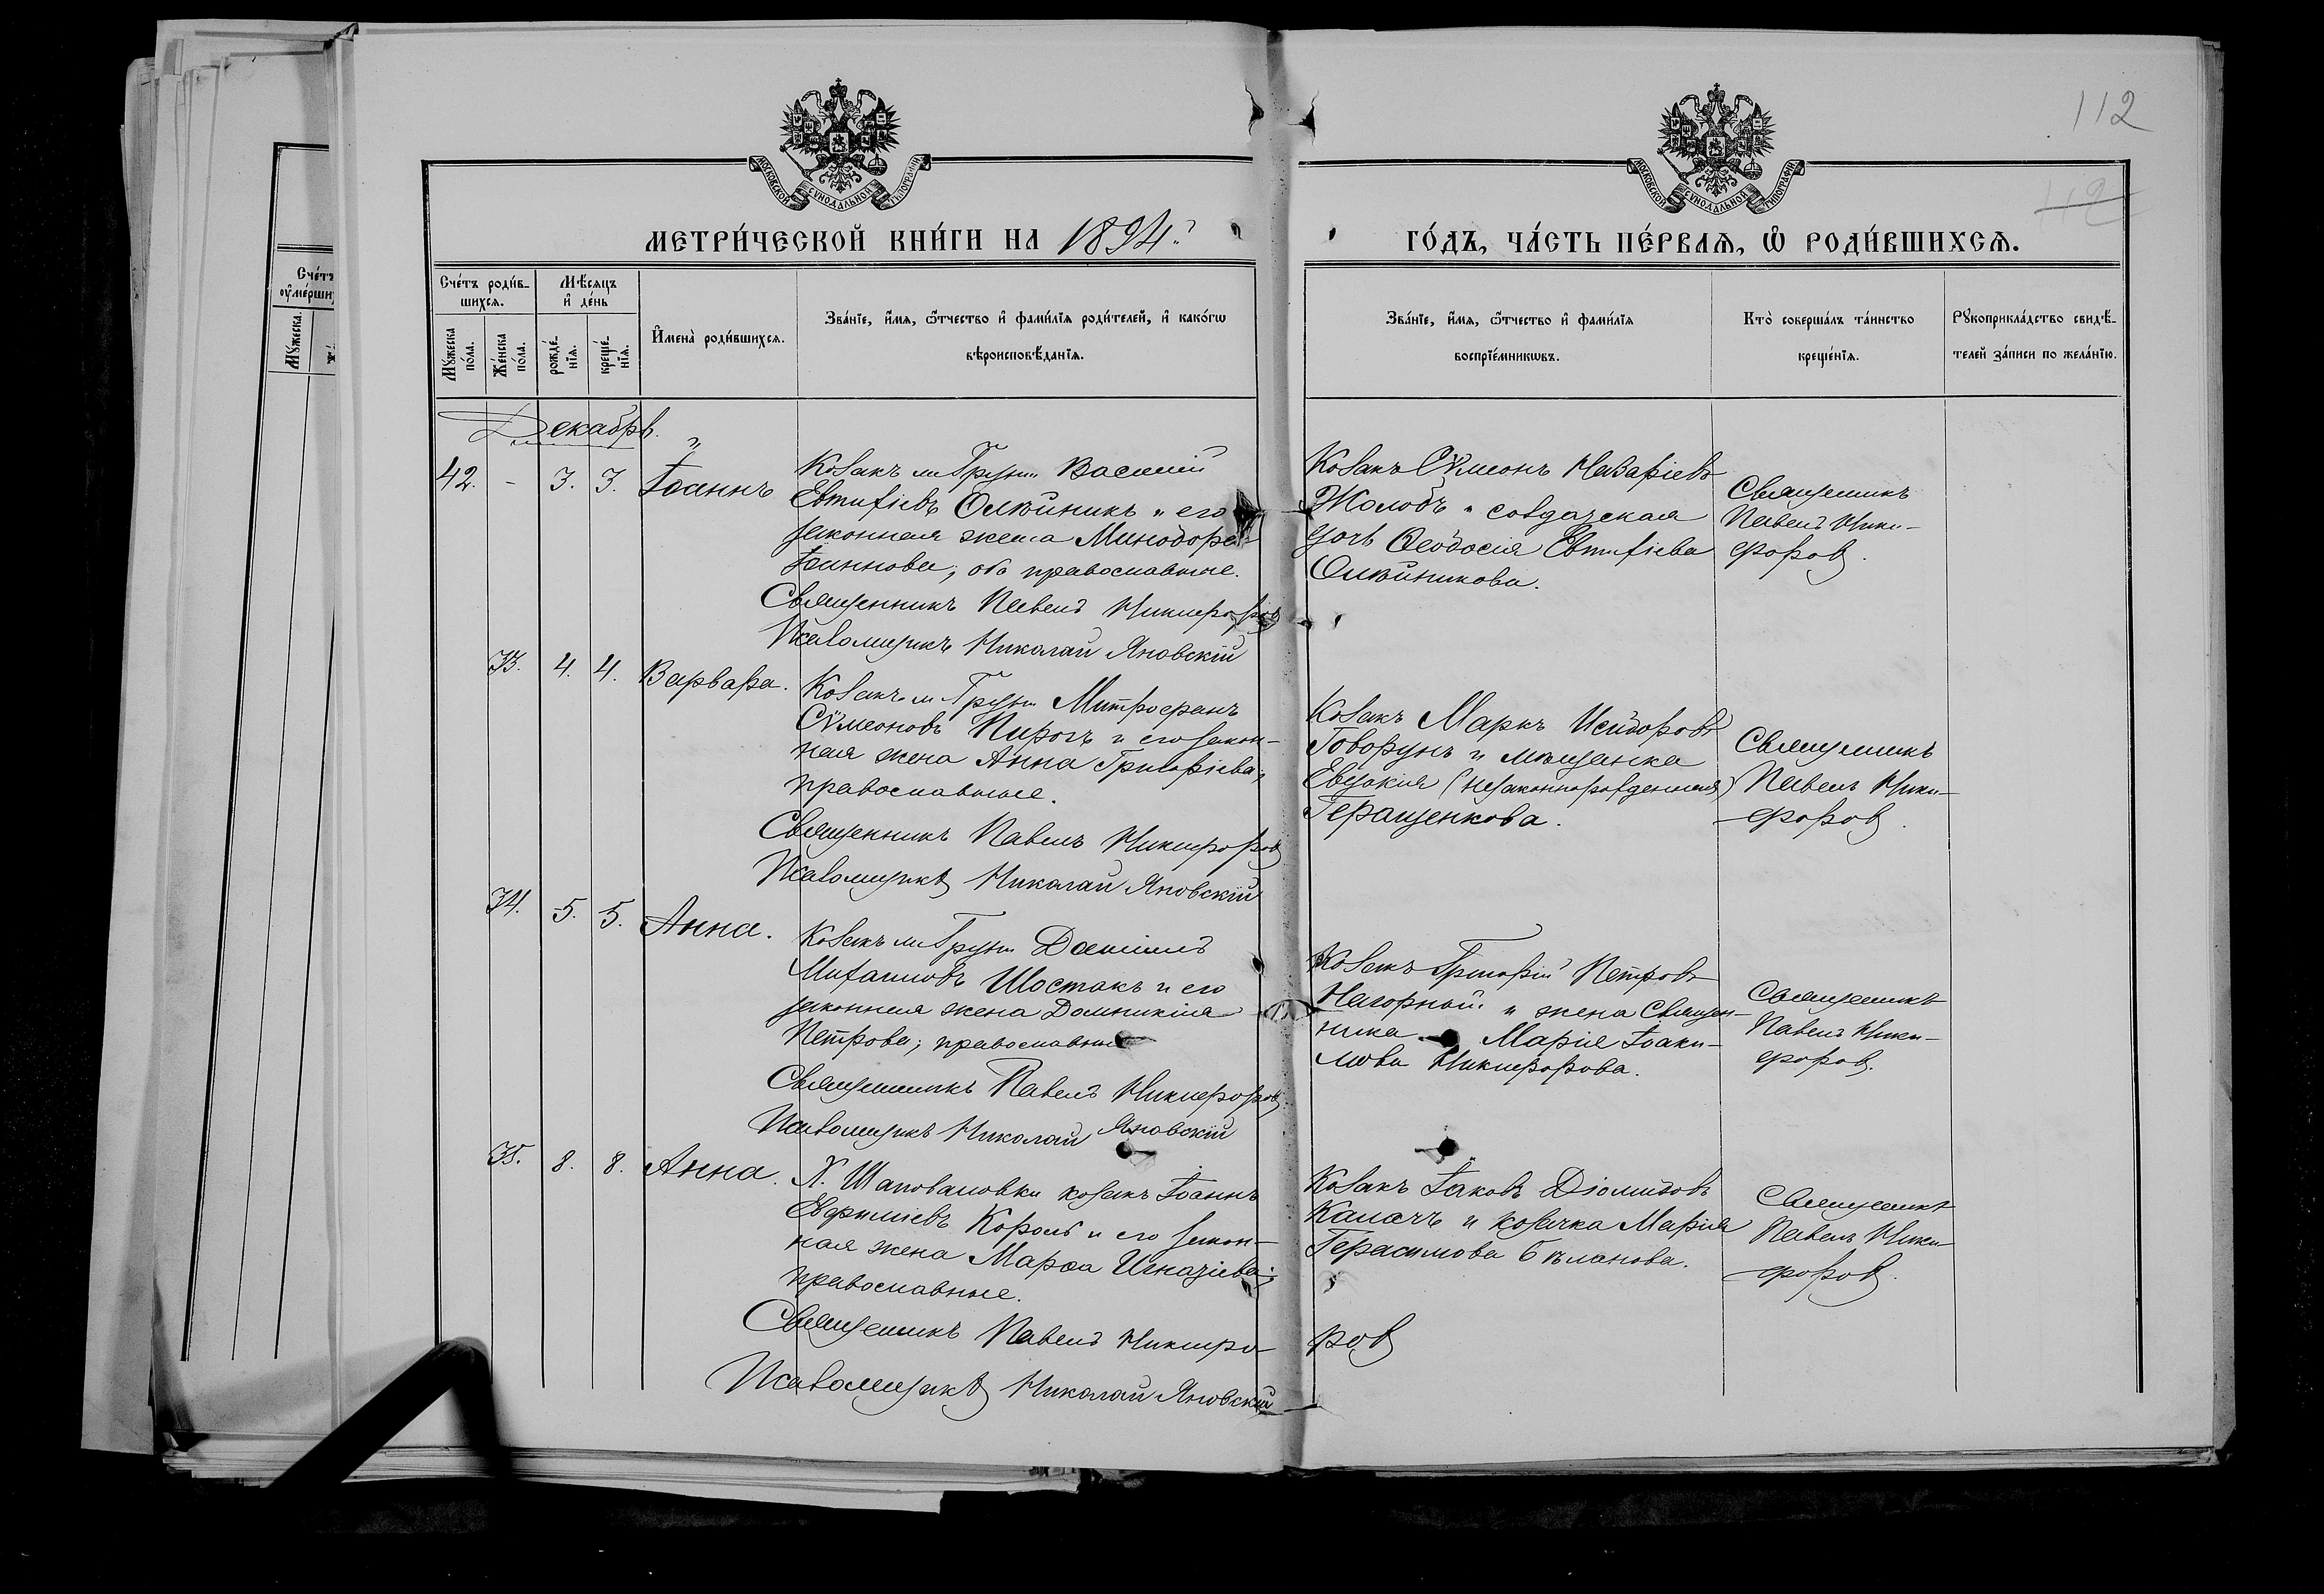 112
112
МОСКОВСКОЙ СѴНОДАЛЬНОЙ ТИПОГРАФІИ
МОСКОВСКОЙ СѴНОДАЛЬНОЙ ТИПОГРАФІИ
МЕТРИ́ЧЕСКОЙ КНИ́ГИ НА 1894.
ГО́ДЪ, ЧА́СТЬ ПЕ́РВАѦ, Ѡ҆ РОДИ́ВШИХСѦ.
Сче́тъ
оу҆ме́рших
Мꙋ́жеска.
Сче́тъ роди́в-
шихсѧ.
Мꙋ́жеска по́ла.
Же́нска по́ла.
Мѣ́сѧцъ
и҆ де́нь
рожде́-
нїѧ.
креще́-
нїѧ.
И҆мена̀ роди́вшихсѧ.
Зва́нїе, и҆́мѧ, ѻ҆́тчество и҆ фами́лїѧ роди́телей, и҆ како́гѡ
вѣроисповѣ́данїѧ.
Зва́нїе, и҆́мѧ, ѻ҆́тчество и҆ фами́лїѧ
воспрїе́мникѡвъ.
Кто̀ соверша́лъ та́инство
креще́нїѧ.
Рꙋкоприкла́дство свидѣ́-
телей за́писи по жела́нїю.
Декабрь.
42. - 3. 3. Іоаннъ
Козакъ м. Груни Василій
Евтихіевъ Олѣйникъ и его
законная жена Минодора
Іоаннова, оба православные.
Священникъ Павелъ Никифоровъ
Псаломщикъ Николай Яновскій
Козакъ Сѵмеонъ Назаріевъ
Жолобъ и солдатская
дочь Ѳеодосія Евтихіева
Олѣйникова.
Священникъ
Павелъ Ники-
форовъ.
33. 4. 4. Варвара.
Козакъ м. Груни Митрофанъ
Сѵмеоновъ Пирогъ и его закон-
ная жена Анна Григоріева,
православные.
Священникъ Павелъ Никифоровъ
Псаломщикъ Николай Яновскій
Козакъ Маркъ Исидоровъ
Говорунъ и мѣщанка
Евдокія (незаконнорожденная)
Геращенкова.
Священникъ
Павелъ Ники-
форовъ.
34. 5. 5. Анна.
Козакъ м. Груни Даніилъ
Михаиловъ Шостакъ и его
законная жена Домникія
Петрова; православные
Священникъ Павелъ Никифоровъ
Псаломщикъ Николай Яновскій
Козакъ Григорій Петровъ
Нагорный и жена Священ-
ника Марія Іоаки-
мова Никифорова.
Священникъ
Павелъ Ники-
форовъ.
35. 8. 8. Анна.
Х. Шаповаловки козакъ Іоаннъ
Евфиміевъ Король и его закон-
ная жена Марѳа Игнатіева;
православные.
Священникъ Павелъ Никифо-
ровъ
Псаломщикъ Николай Яновскій
Козакъ Іаковъ Діомидовъ
Калачъ и козачка Марія
Герасимова Бѣланова.
Священникъ
Павелъ Ники-
форовъ.